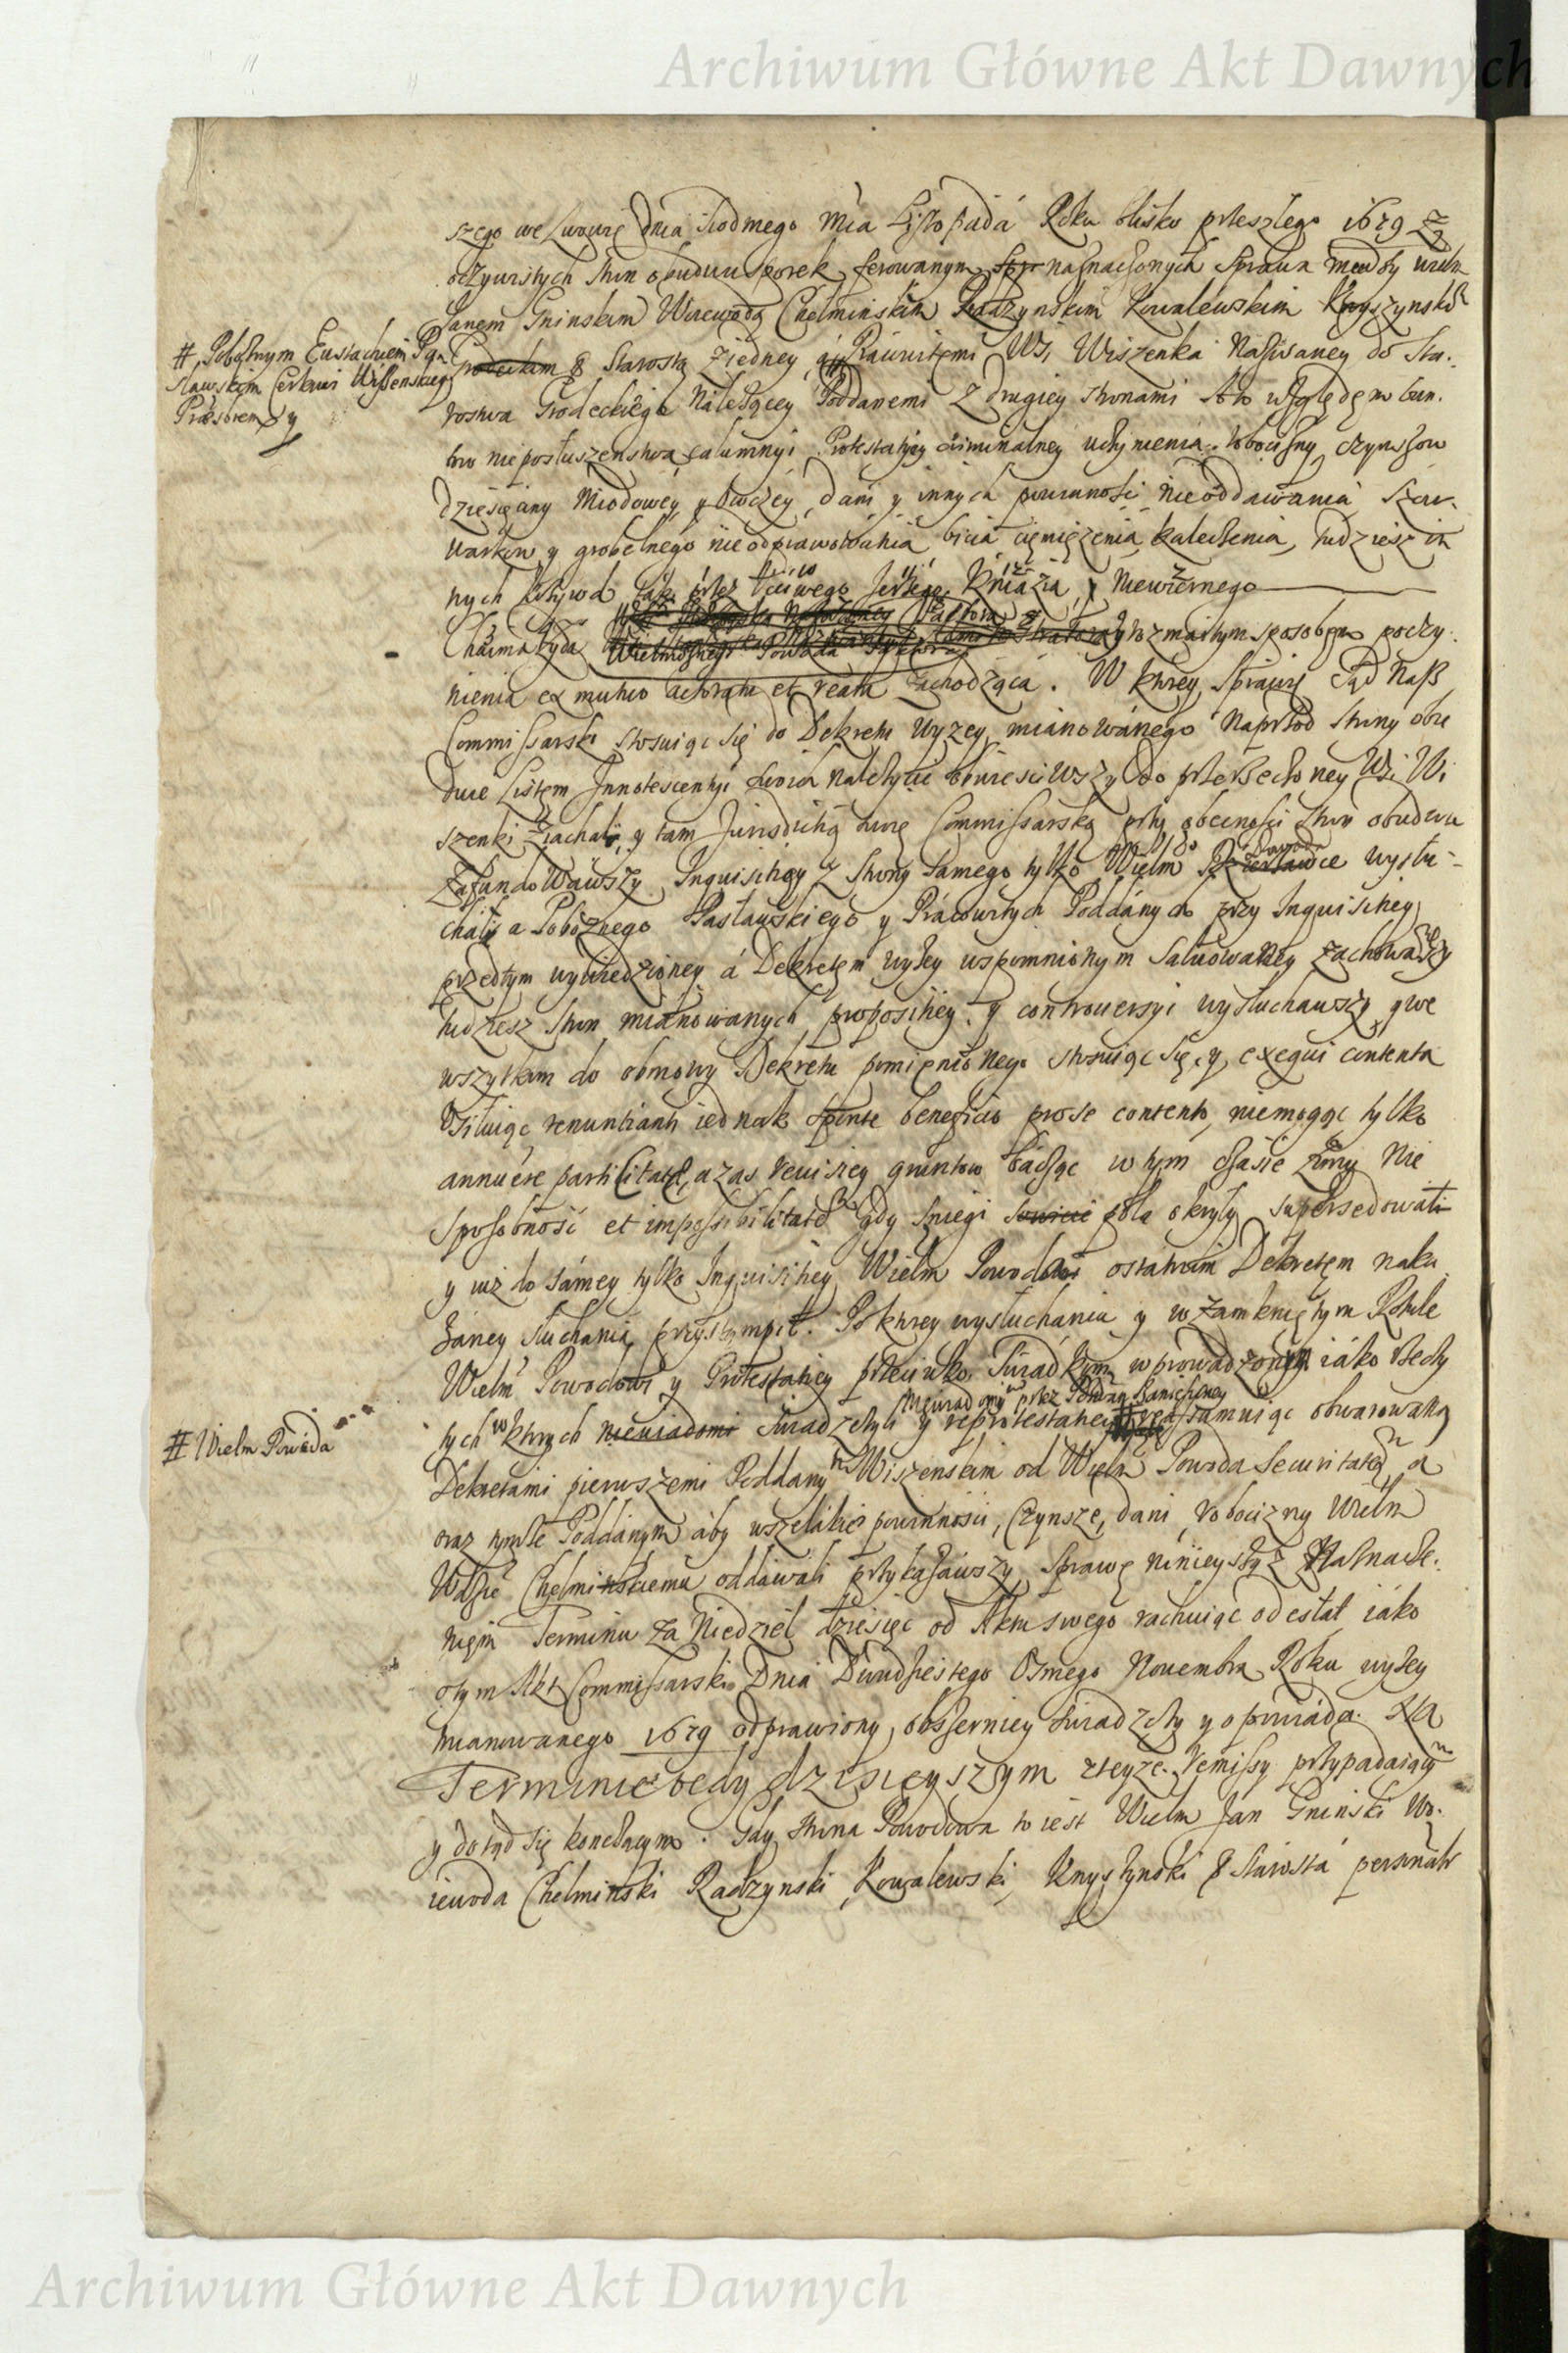 Archiwum Główne Akt Dawnych
szego we Lwowie dnia siodmego Mca Listopada Roku blisko przeszłego 1679 z
oczywistych stron obudwu porek ferowanym naznaczonych Sprawa miedzy Wielm
Janem Gninskim Wiewodą Chełminskim Radzynskim Kowalewskim Knyszynskim
# Pobożnym Eustachiem Pa
sławskim Cerkwi Wiszenskiey
Prezbiterem y
Grodeckim & Starostą z iedney, a Pracowitemi Wsi Wiszenka Nazwaney do Sta-
rostwa Grodeckiego Należącey Poddanemi z drugiey stronami o to względem bun-
tow nieposłuszenstwa calumnyi Protestatiey criminalney uczynienia robocizny czynszow
dziesięciny Miodowey y Owczey, dani y innych powinnosci nieoddawania Szar-
warkow y grobelnego nieodprawowania bicia ciemiężenia kaleczenia, tudziesz in
nych krzywd iako przez Jerzego Kniazia, y Niewiernego
Chaima Żyda rozmaitym sposobem poczy-
nienia ex mutuo actoratu et reatu zachodząca. W ktorey Sprawie Sąd Nasz
Commissarski stosuiąc się do Dekretu wyzey mianowanego naprzod strony obie
dwie Listem Innotescentyi swoia należycie obwiesciwszy do przerzeczoney Wsi Wi
szenki ziachali, y tam Jurisdictią swoię Commissarską przy obecnosci stron obudwu
zafundowawszy Inquisitiey z strony samego tylko Wielm Powoda wysłu-
chali a Pobożnego Pasławskiego y Pracowitych Poddanych przy Inquisitiey
przedtym wywiedzioney a Dekretem wyżey wspomnionym salwowaney zachowawszy
tudziesz stron mianowanych propositiey y controuersyi wysłuchawszy, y we
wszytkim do obmowy Dekretu pomienionego stosuiąc się, y exequi contenta
Usiłuiąc renuntianti iednak sponte beneficio prose contento, niemogąc tylko
annuere parti citatae, a zas reuisiey gruntow bacząc w tym czasie zimy nie
sposobność et impossibilitatem gdy sniegi pola okryły supersedowali
y iuż do samey tylko Inquisitiey Wielm Powodowi ostatnim Dekretem naka
zaney słuchania przystąmpił. Po ktorey wysłuchaniu y w zamknętym Rotule
Wielm Powodowi y Protestatiey przeciwko Swiadkom wprowadzonym iako rzeczy
tych w ktorych niewiadomi Swiadczyli y reprotestatiey reassumuiąc obwarowaną
# Wielm Powoda
Dekretami pierwszemi Poddanym Wiszenskim od Wielm Powoda Securitatem a
oraz tymże Poddanym aby wszelakie powinnosci, Czynsze, dani, robocizny Wielm
Wdzie Chełminskiemu oddawali przykazawszy Sprawę ninieyszą z Naznacze-
niem Terminu za Niedziel dziesięc od Aktu swego rachuiąc odesłał iako
o tym Akt Commissarski Dnia Dwudziestego Osmego Nouembra Roku wyżey
mianowanego 1679 odprawiony obszerniey swiadczy y opowiada. Na
Terminie tedy dzisieyszym z teyże Remissy przypadaiącym
y dotąd się kończącym. Gdy strona Powodowa to iest Wielm Jan Gninski Wo-
iewoda Chełminski Radzynski, Kowalewski, Knyszynski & Starosta personaliter
Archiwum Główne Akt Dawnych